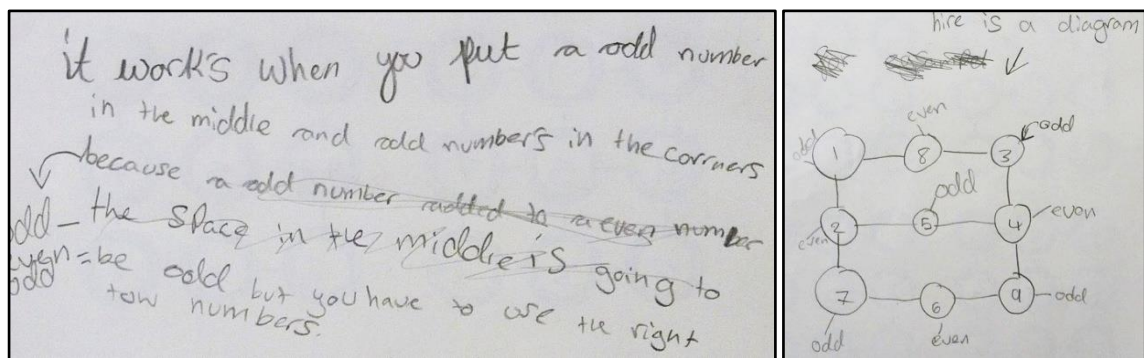 it works when you put a odd number
in the middle and odd numbers in the corrners
because a odd number added to a even number
odd - the space in the middle is going to
even = be odd but you have to use the right
odd tow numbers.
hire is a diagram
odd even odd
1 8 3
odd
2 5 4 even
even
7 6 9 odd
odd even